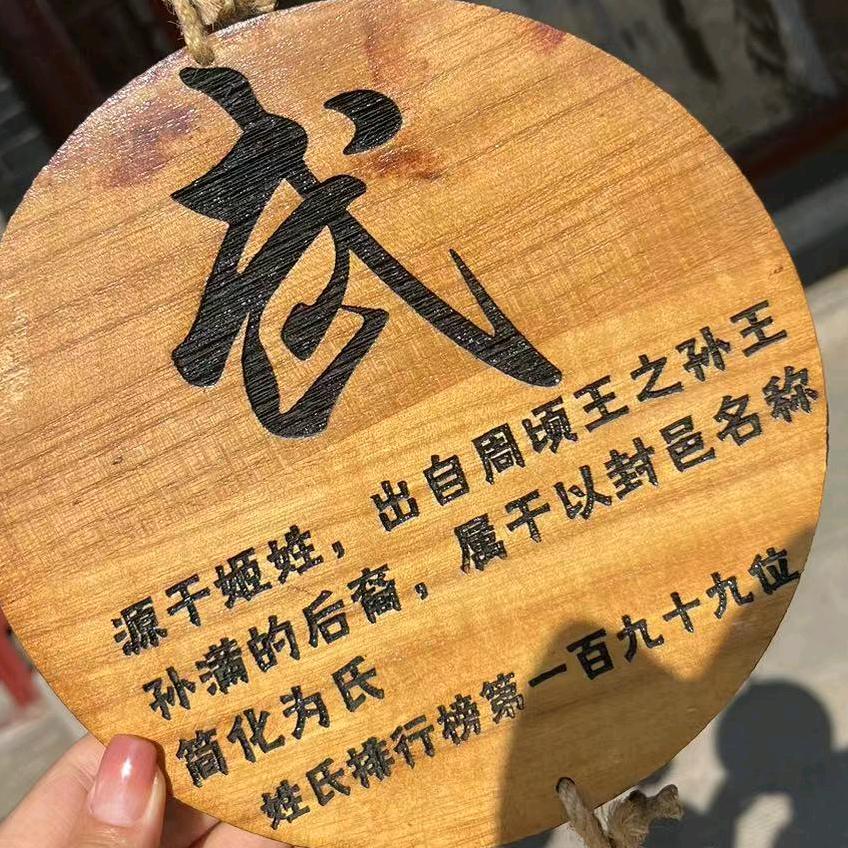 武
源于姬姓，出自周顷王之孙王
孙满的后裔，属于以封邑名称
简化为氏
姓氏排行榜第一百九十九位